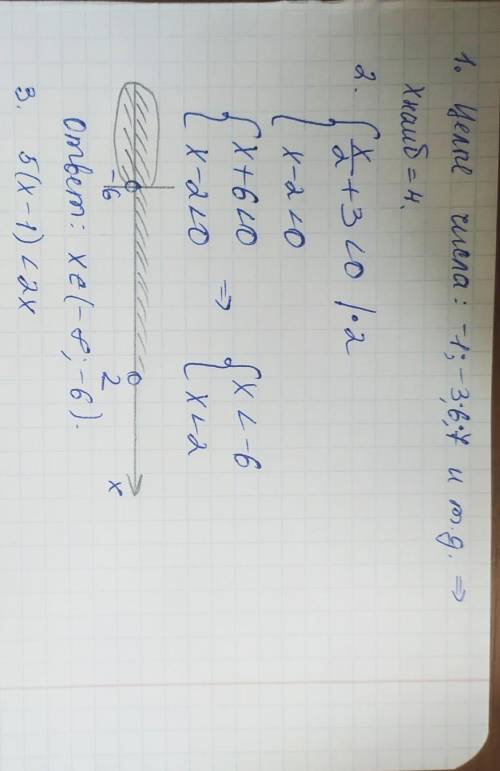 1. Целые числа: -1; -3; 6; 7 и т.д. ⇒
xнаиб = 4.
2. { x/2 + 3 < 0 | · 2
{ x - 2 < 0
{ x + 6 < 0 ⇒ { x < -6
{ x - 2 < 0 { x < 2
-6 2 x
Ответ: x ∈ (-∞; -6).
3. 5(x - 1) < 2x